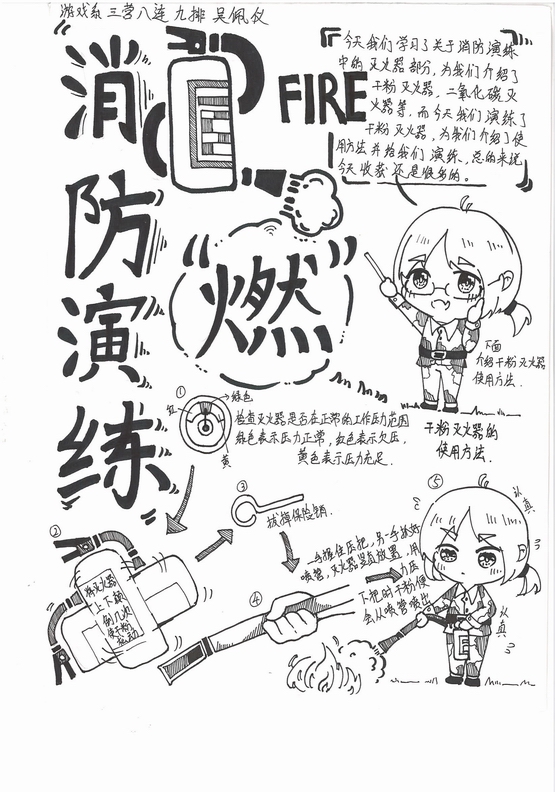 游戏系 三营八连 九排 吴佩仪
消防演练
FIRE
今天我们学习了关于消防演练
中的灭火器部分,为我们介绍了
干粉灭火器,二氧化碳灭
火器等,而今天我们演练了
干粉灭火器,为我们介绍了使
用方法并给我们演练,总的来说
今天收获还是很多的。
“燃”
下面
介绍干粉灭火器
使用方法.
干粉灭火器的
使用方法.
①
绿色
红
黄
检查灭火器是否在正常的工作压力范围
绿色表示压力正常,红色表示欠压,
黄色表示压力充足.
②
将灭火器
上下颠
倒几次
使干粉
松动
③
拔掉保险销.
④
一手握住压把,另一手抓好
喷管,灭火器竖直放置,用
力压
下把的干粉便
会从喷管喷出
⑤
认真
认真